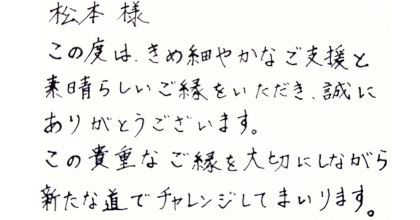 松本様
この度は、きめ細やかなご支援と
素晴らしいご縁をいただき、誠に
ありがとうございます。
この貴重なご縁を大切にしながら
新たな道でチャレンジしてまいります。